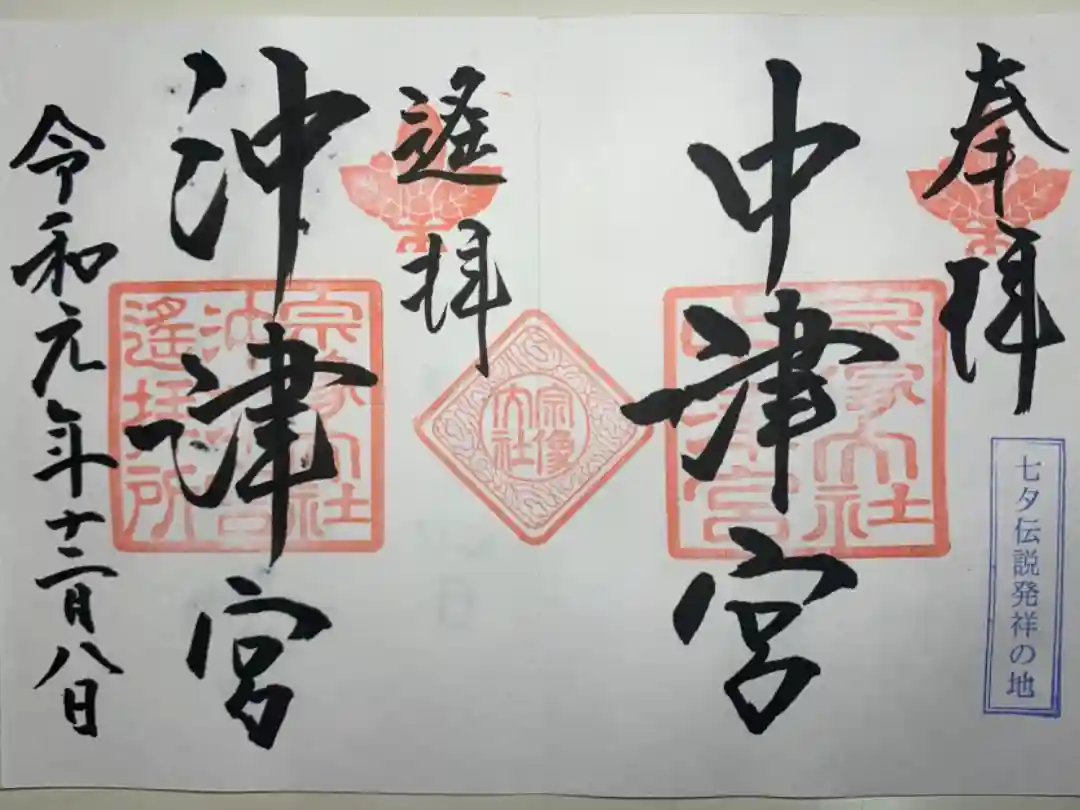 奉拝
七夕伝説発祥の地
中津宮
宗像大社
中津宮
宗像
大社
遥拝
沖津宮
宗像大社
沖津宮
遙拝所
令和元年十二月八日